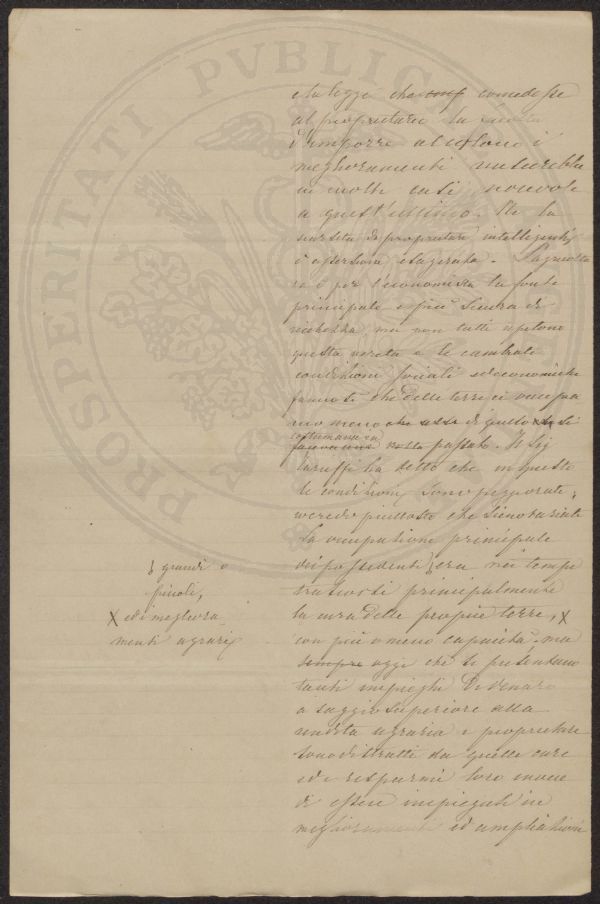 PROSPERITATI PVBLICA
e la legge che concedesse
al proprietario la facoltà
d'imporre al colono i
miglioramenti riuscirebbe
in molti casi nocevole
a quest'ultimo. Che la
scarsità di proprietari intelligenti
è asserzione esagerata. L'agricoltu
ra è per l'economista la fonte
principale e più sicura di
ricchezza, ma non tutti ripetono
questa verità e le cambiate
condizioni sociali ed economiche
fanno sì che delle terre ci occupia
mo meno che di questo si
costumava in
faceva una volta passato. Il Sig
Taruffi ha detto che in questo
le condizioni sono peggiorate,
io credo piuttosto che sieno variate
La occupazione principale
dei possidenti, era nei tempi
trascorsi principalmente
la cura delle proprie terre, X
con più o meno capacità, ma
sempre oggi che si presentano
tanti impieghi di denaro
a saggio superiore alla
rendita agraria i proprietari
sono distratti da quelle cure
ed i risparmi loro invece
di essere impiegati in
miglioramenti ed ampliazioni
grandi o
piccoli,
X ed i migliora
menti agrari